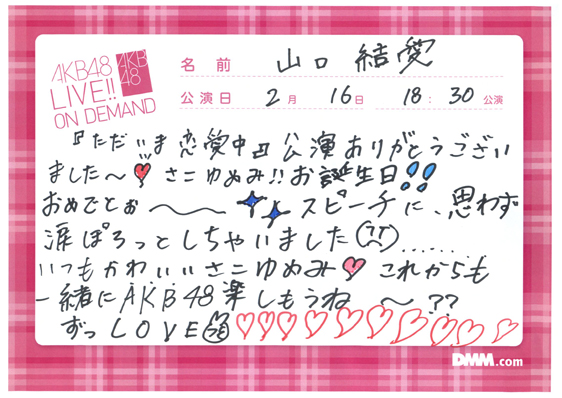 AKB48
LIVE!!
ON DEMAND
AKB
48
名前 山口 結愛
公演日 2月 16日 18:30公演
『ただいま恋愛中』公演ありがとうござい
ました〜 さこゆめみ!!お誕生日!!
おめでとぉ〜〜 スピーチに、思わず
涙ぽろっとしちゃいました......
いつもかわいいさこゆめみ これからも
一緒にAKB48楽しもうね 〜??
ずっLOVE
DMM.com